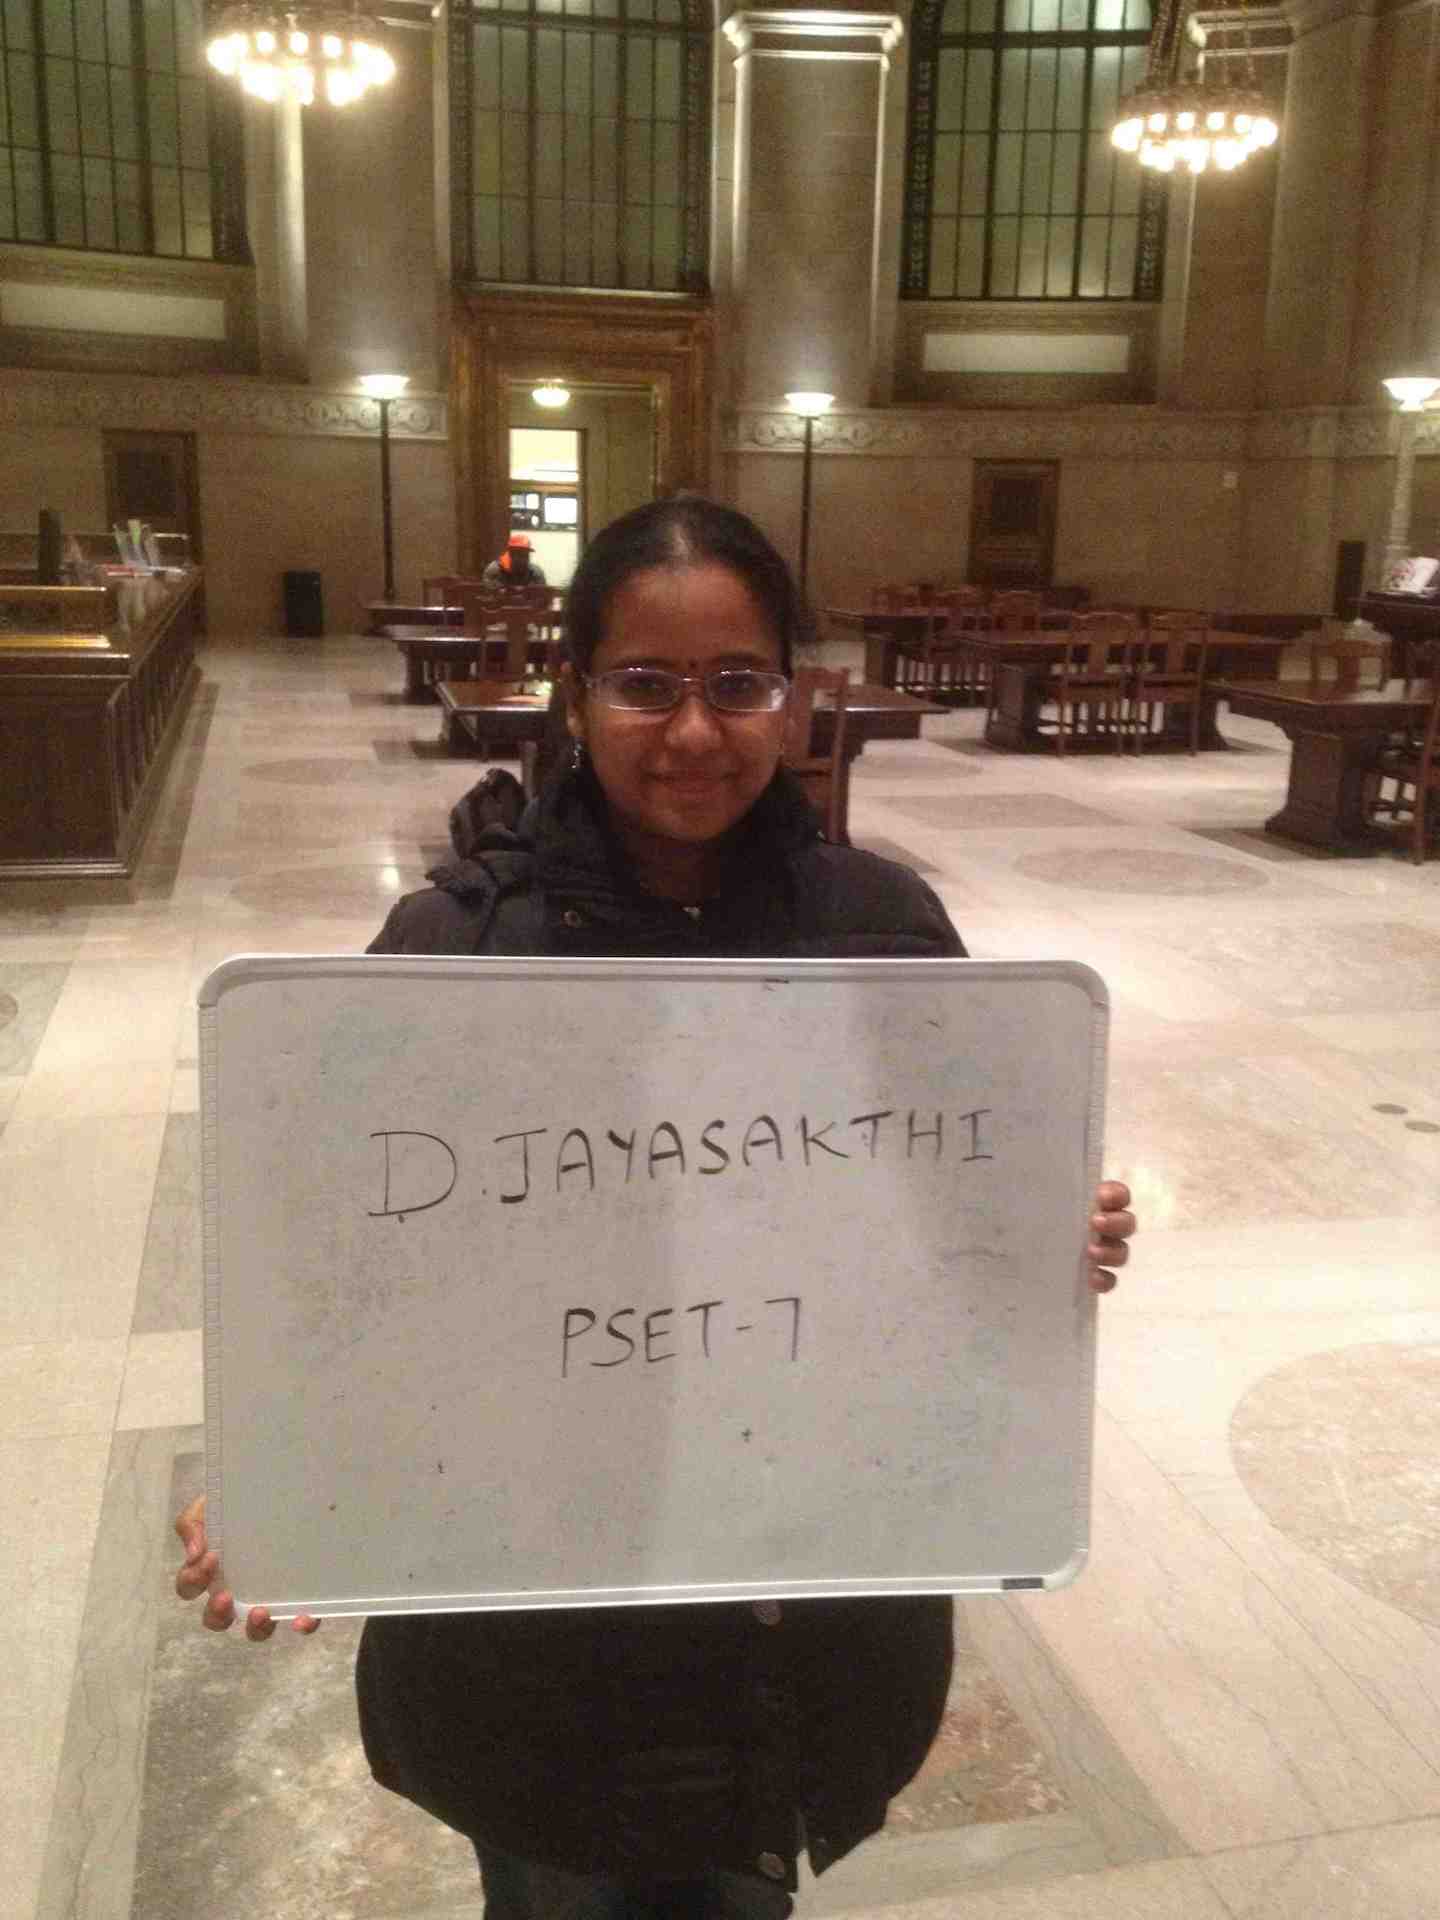 D.JAYASAKTHI
PSET-7